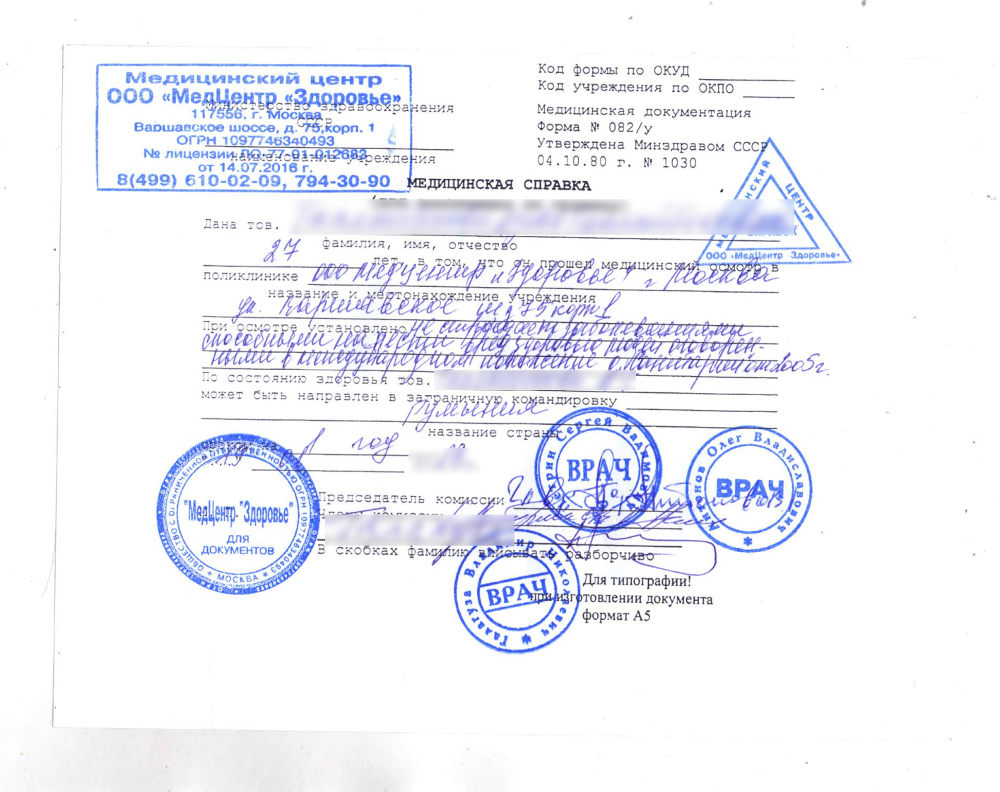 Медицинский центр
ООО «МедЦентр «Здоровье»
117556, г. Москва
Варшавское шоссе, д. 75,корп. 1
ОГРН 1097746340493
№ лицензии ЛО-77-01-012682
от 14.07.2016 г.
8(499) 610-02-09, 794-30-90
Министерство здравоохранения
СССР
наименование учреждения
Код формы по ОКУД
Код учреждения по ОКПО
Медицинская документация
Форма № 082/у
Утверждена Минздравом СССР
04.10.80 г. № 1030
ЦЕНТР
ООО «МедЦентр Здоровье»
МЕДИЦИНСКАЯ СПРАВКА
Дана тов.
фамилия, имя, отчество
27 лет, в том, что он прошел медицинский осмотр в
поликлинике ООО МедЦентр "Здоровье" г Москва
название и местонахождение учреждения
ул. Варшавское ш д 75 корп 1
При осмотре установлено не страдает заболеваниями
способными нанести вред здоровью людей, оговорен-
ными в международном положение о санитарии от 2005 г.
По состоянию здоровья тов.
может быть направлен в заграничную командировку
Румыния
название страны
1 год
Председатель комиссии
В скобках фамилию вписывать разборчиво
Для типографии!
при изготовлении документа
формат А5
ОБЩЕСТВО С ОГРАНИЧЕННОЙ ОТВЕТСТВЕННОСТЬЮ ОГРН 1097746340493
"МедЦентр "Здоровье"
ДЛЯ
ДОКУМЕНТОВ
* МОСКВА *
Сергей Вадимович
ВРАЧ
Антонов Олег Владиславович
ВРАЧ
Галагуза Владимир Николаевич
ВРАЧ